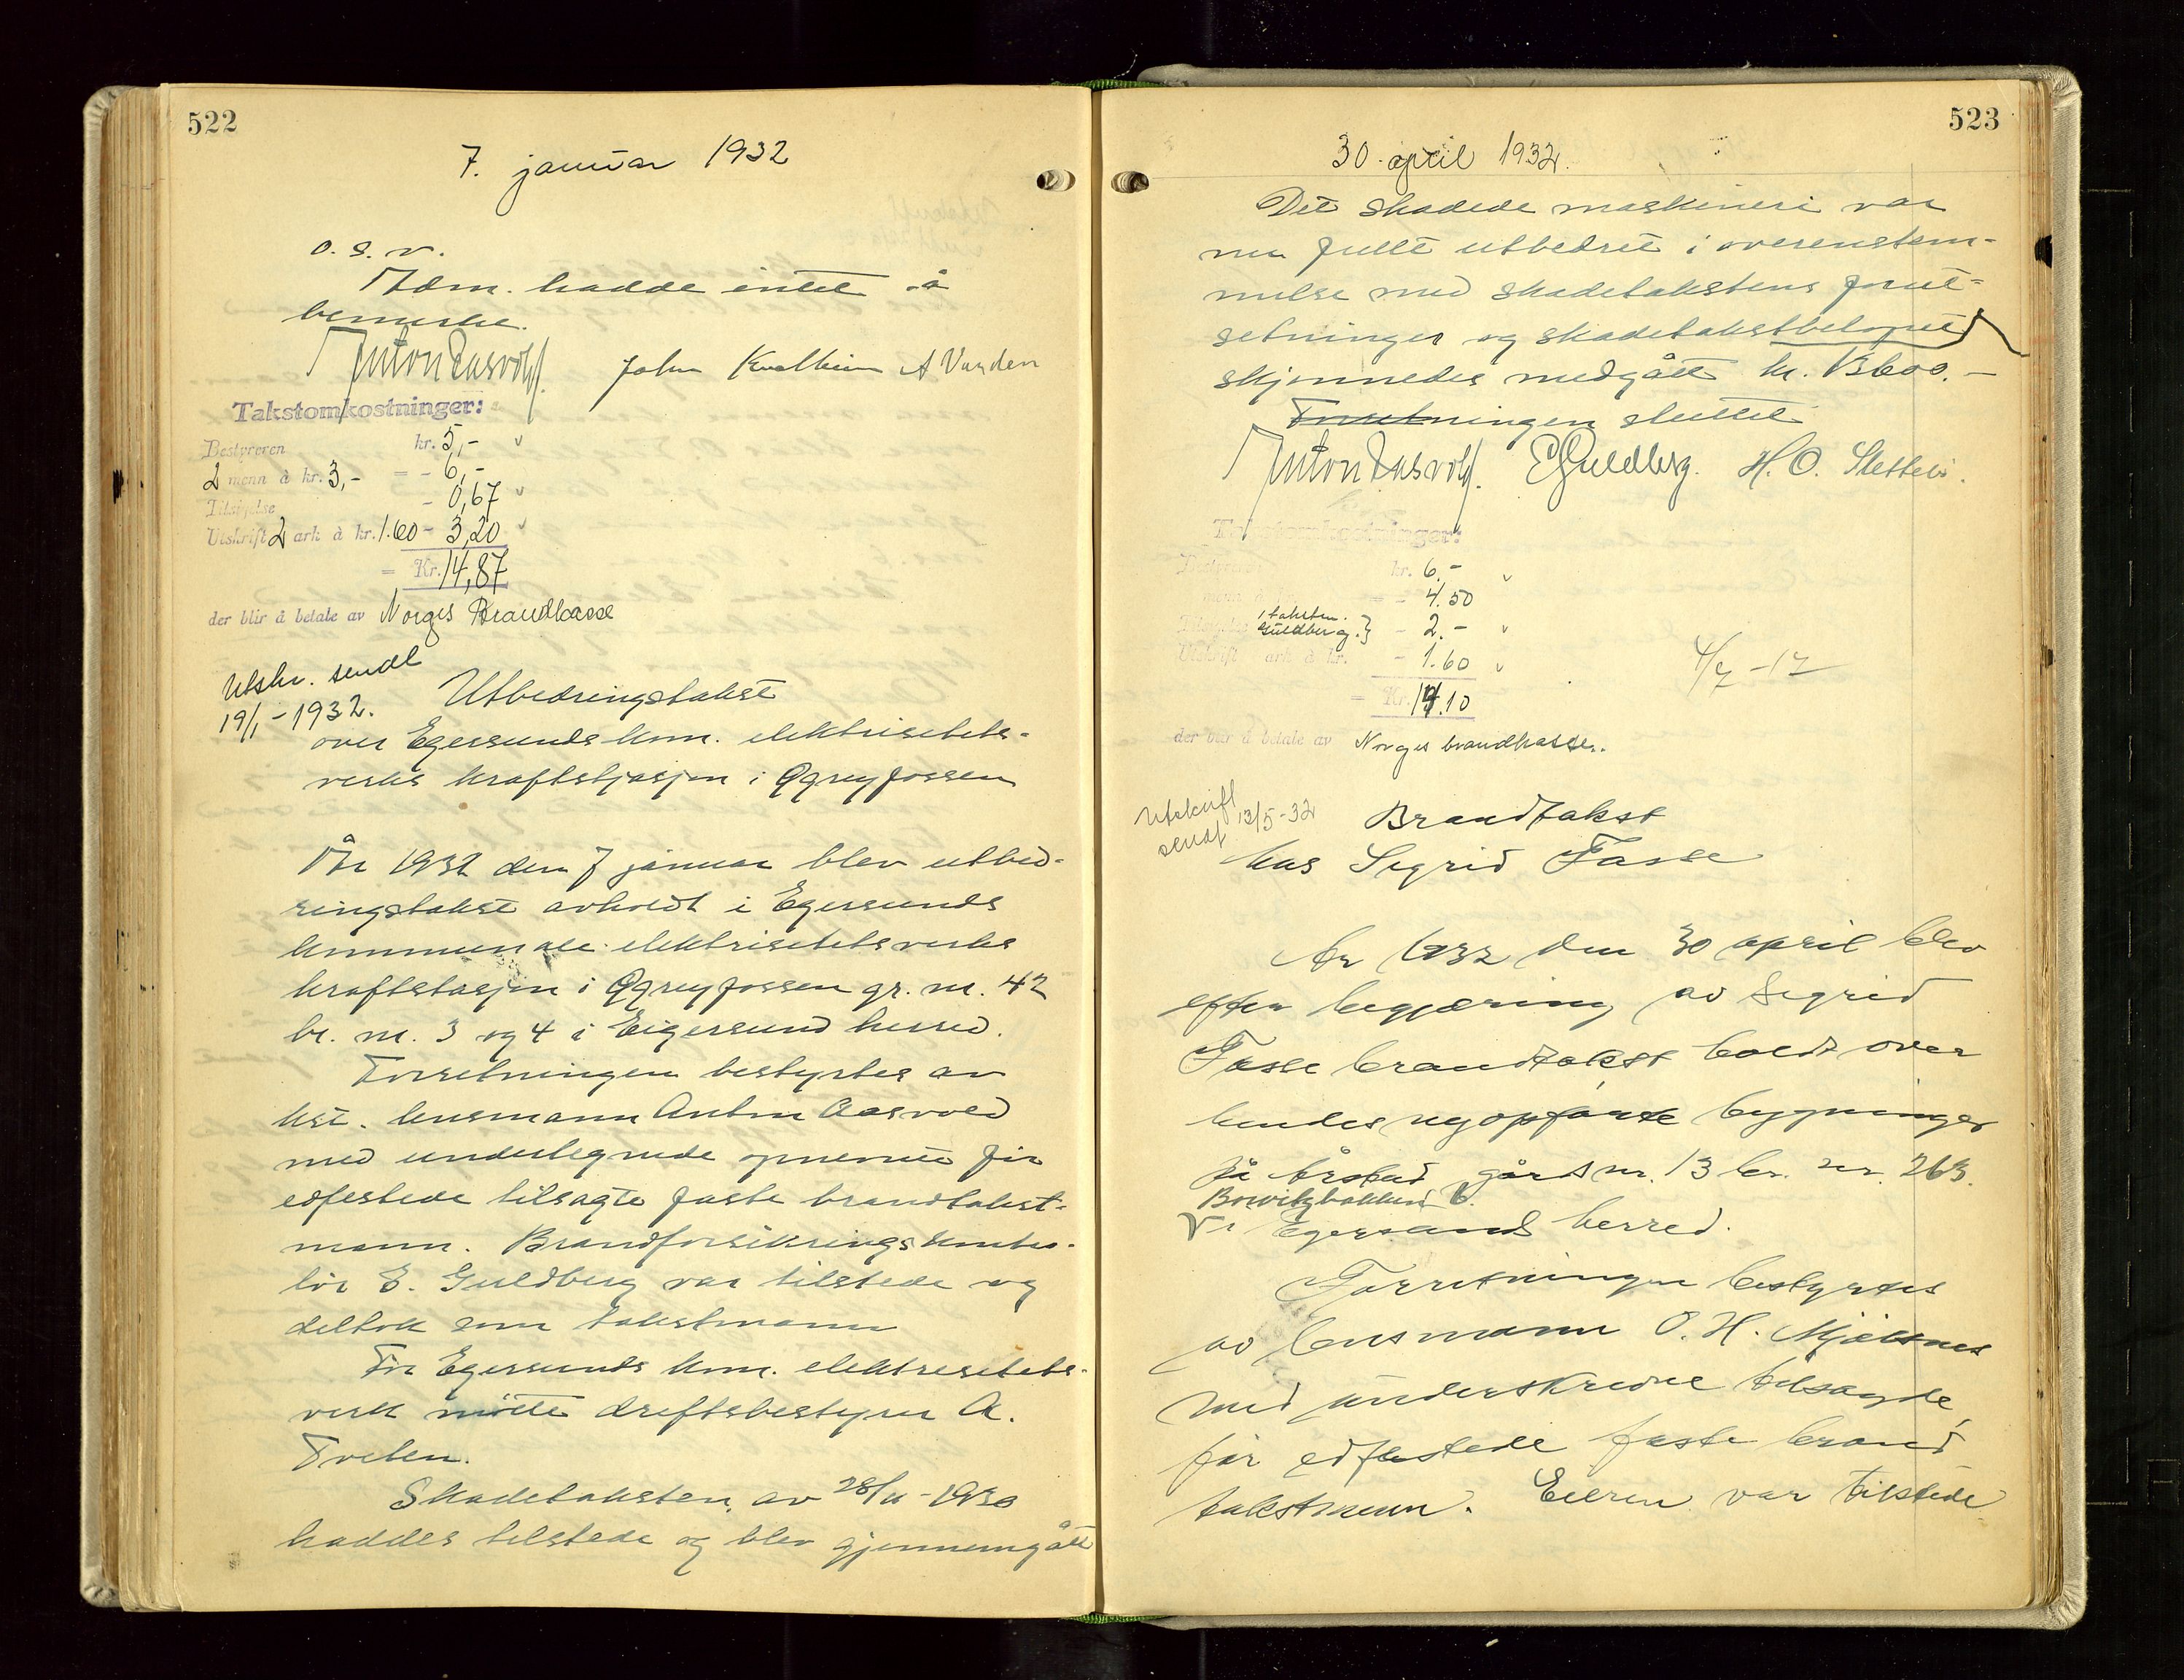 522
7. januar 1932
o. s. v.
Adm. hadde intet å
bemerke.
Anton Aasvold John Kvalheim A Varden
Takstomkostninger:
Bestyreren kr. 5,-
2 menn à kr. 3,- = - 6,-
Tilsigelse - 0,67
Utskrift 2 ark à kr. 1.60 - 3,20
= Kr. 14,87
der blir å betale av Norges Brandkasse
Utskr. sendt
19/1-1932.
Utbedringstakst
over Egersunds kom. elektrisitets-
verks kraftstasjon i Øgreyfossen
År 1932 den 7 januar blev utbed-
ringstakst avholdt i Egersunds
kommunale elektrisitetsverks
kraftstasjon i Øgreyfossen gr. nr. 42
br. nr. 3 og 4 i Eigersund herred.
Forretningen bestyrtes av
kst. lensmann Anton Aasvold
med undertegnede opnevnte før
edfestede tilsagte faste brandtakst-
mann. Brandforsikringskontro-
lør E. Guldberg var tilstede og
deltok som takstmann
For Egersunds kom. elektrisitets-
verk møtte driftsbestyrer A.
Tveten.
Skadetaksten av 28/11-1930
haddes tilstede og blev gjennemgått
523
30. april 1932.
Det skadede maskineri var
nu fullt utbedret i overenstem-
melse med skadetakstens forut-
setninger og skadetakstbeløpet
skjønnedes medgått kr. 3600.-
Forretningen sluttet
Anton Aasvold. E Guldberg. H. O. Slettebø.
Takstomkostninger:
Bestyreren kr. 6.-
menn à kr. = - 4.50
Tilsigelse 1 takstm. Guldberg.} - 2.-
Utskrift ark à kr. - 1.60
= Kr. 14.10
4/7 -17
der blir å betale av Norges brandkasse.
Utskrift
sendt 12/5-32
Brandtakst
hos Sigrid Tasse
År 1932 den 30 april blev
efter begjæring av Sigrid
Tasse brandtakst holdt over
hendes nyopførte bygninger
på Årstad, gårds nr. 13 br. nr. 263.
Bowitzbakken 6.
V i Egersund herred.
Forretningen bestyrtes
av lensmann O. H. Mjølsnes
med underskrevne tilsagde,
før edfestede faste brand
takstmenn. Eieren var tilstede